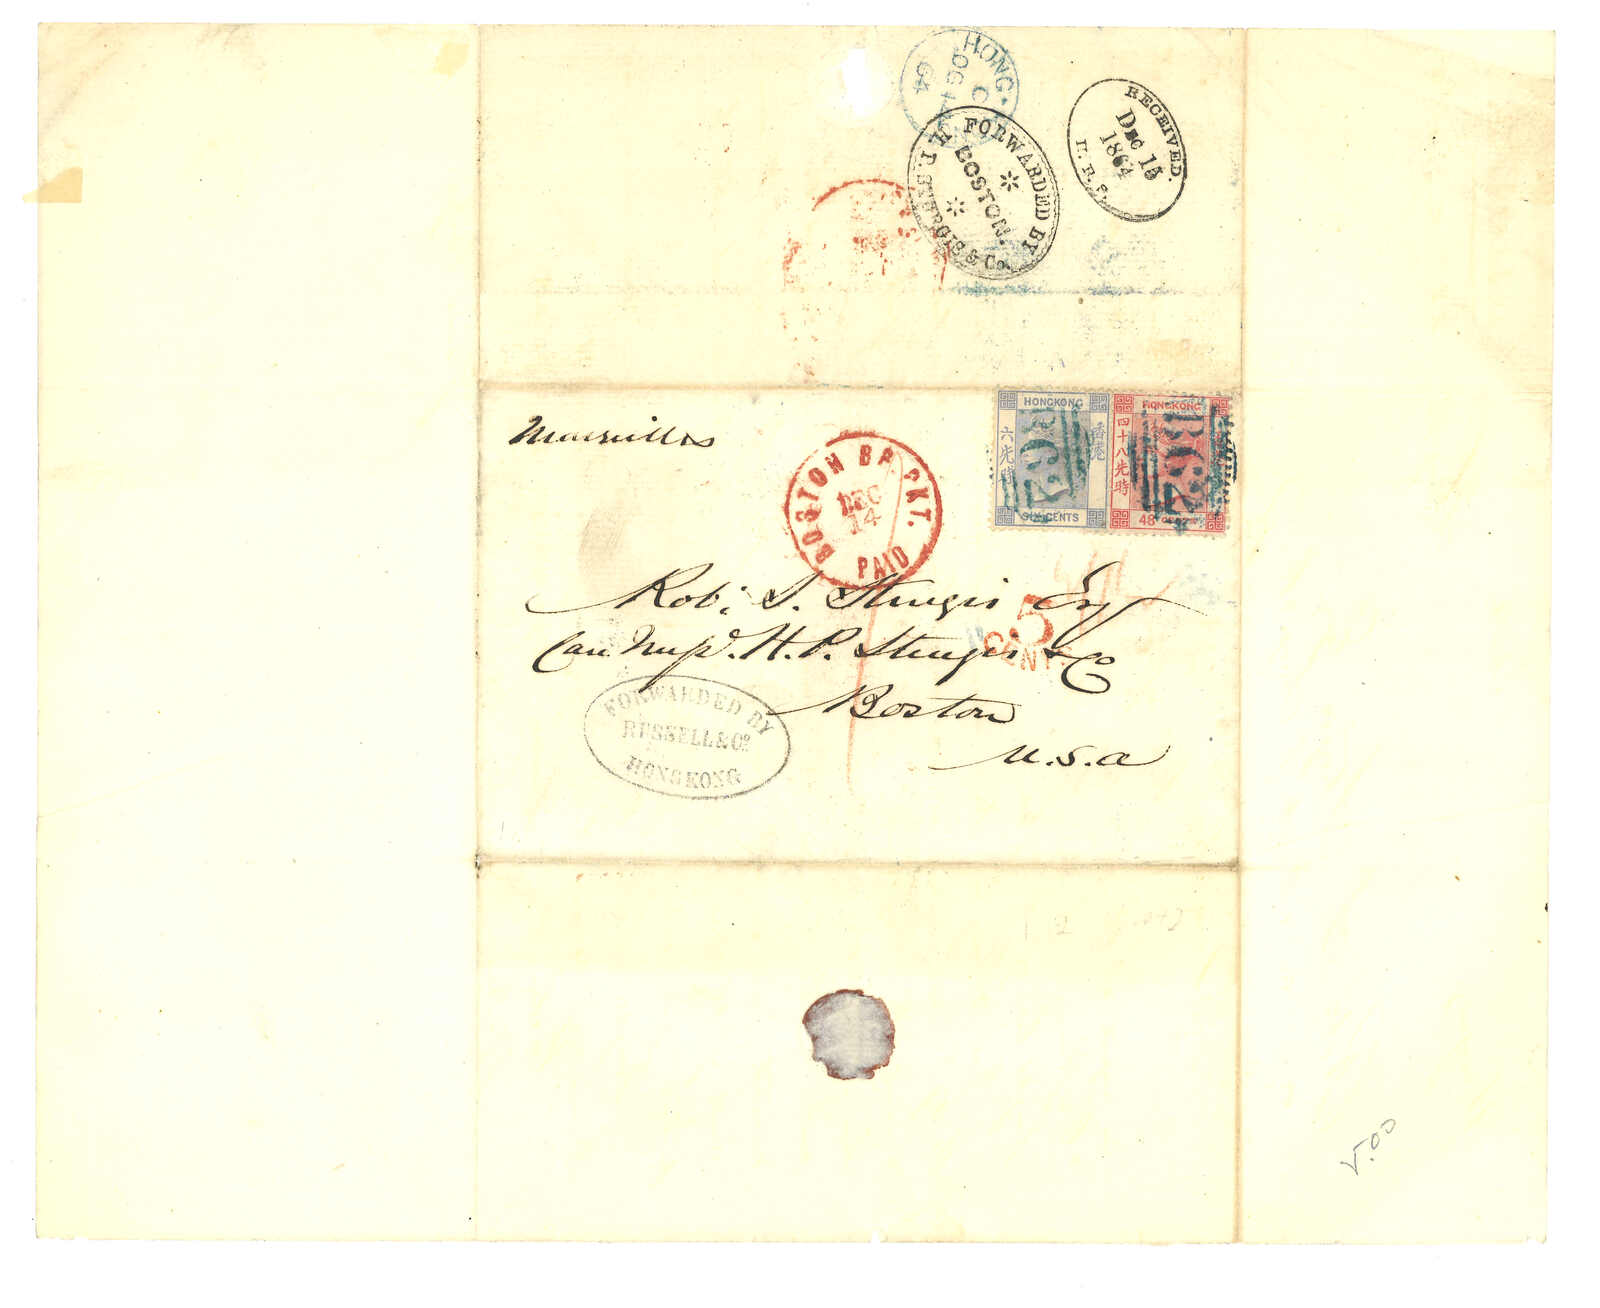 HONG-
C
OC 1
64
FORWARDED BY
H. P. STURGIS & Co.
BOSTON.
RECEIVED.
Dec 15
1864
Marseilles
BOSTON BR. PKT.
DEC
14
PAID
HONGKONG
六先時
香港
SIX CENTS
HONGKONG
四十八先時
48
B62
B62
Robt. S. Sturgis Esq
Care Messrs. H. P. Sturgis & Co
Boston
U.S.A
5
CENTS
FORWARDED BY
RUSSELL & Co.
HONGKONG
5.00